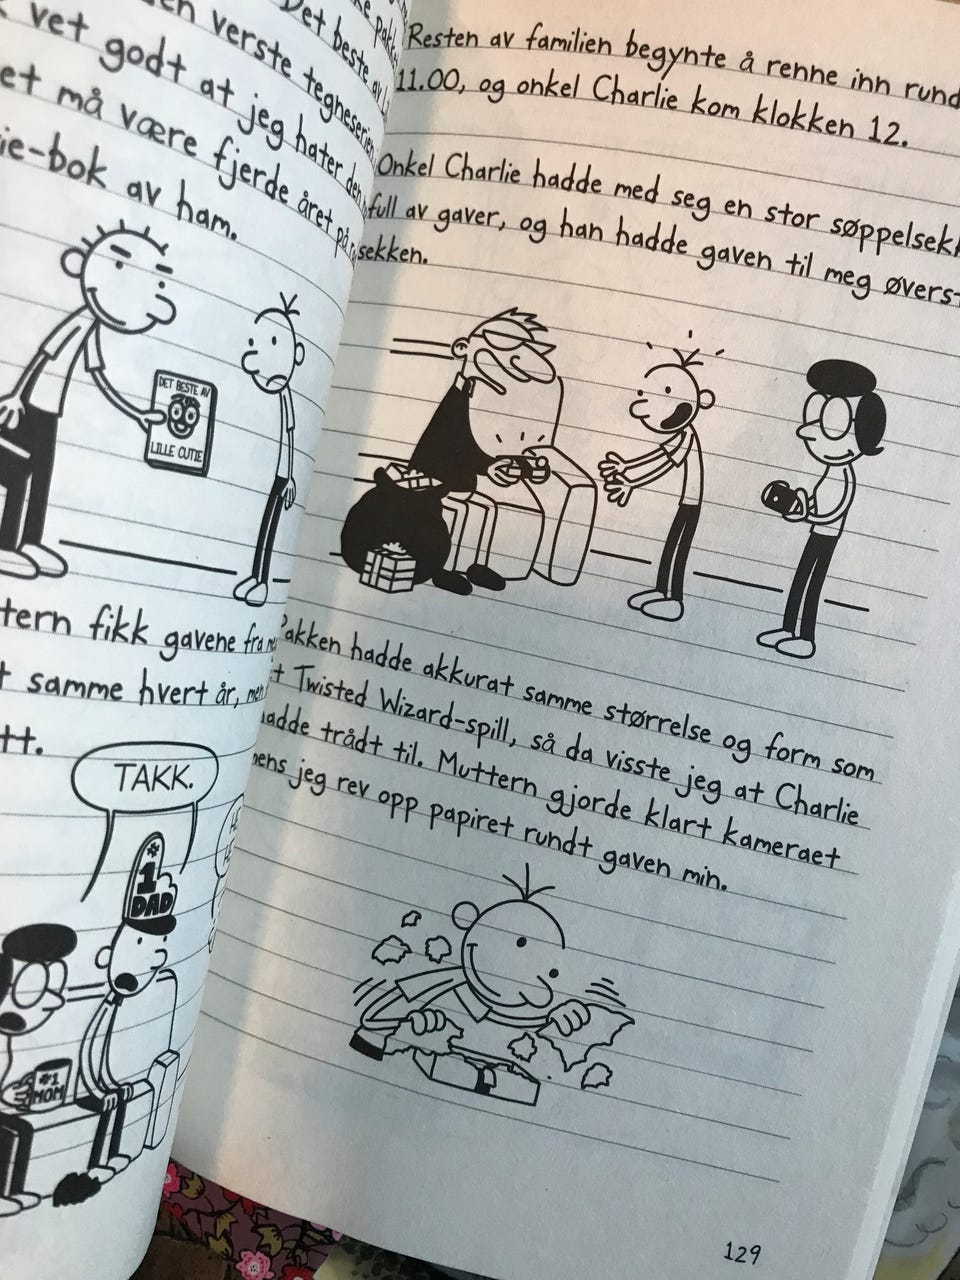 en verste tegneserien
vet godt at jeg hater den
et må være fjerde året på
ie-bok av ham.
Det beste av
DET BESTE AV
LILLE CUTIE
tern fikk gavene fra
t samme hvert år, men
tt.
TAKK.
#1
DAD
#1
MOM
Resten av familien begynte å renne inn rund
11.00, og onkel Charlie kom klokken 12.
Onkel Charlie hadde med seg en stor søppelsekk
full av gaver, og han hadde gaven til meg øverst
sekken.
Pakken hadde akkurat samme størrelse og form som
t Twisted Wizard-spill, så da visste jeg at Charlie
hadde trådt til. Muttern gjorde klart kameraet
mens jeg rev opp papiret rundt gaven min.
129